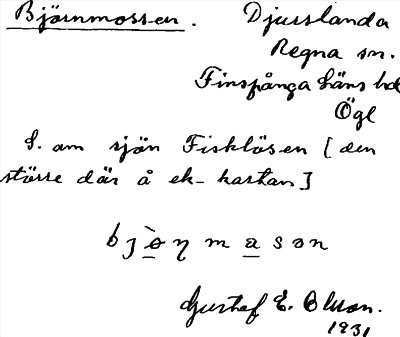 Björnmossen. Djurslanda
Regna sn.
Finspånga läns hd
Ögl
S. om sjön Fisklösen [den
större där å ek-kartan]
Gustaf E. Olson.
1931